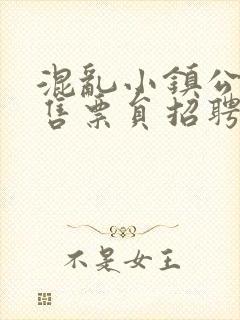 混亂小鎮公
售票員招聘
不是女王